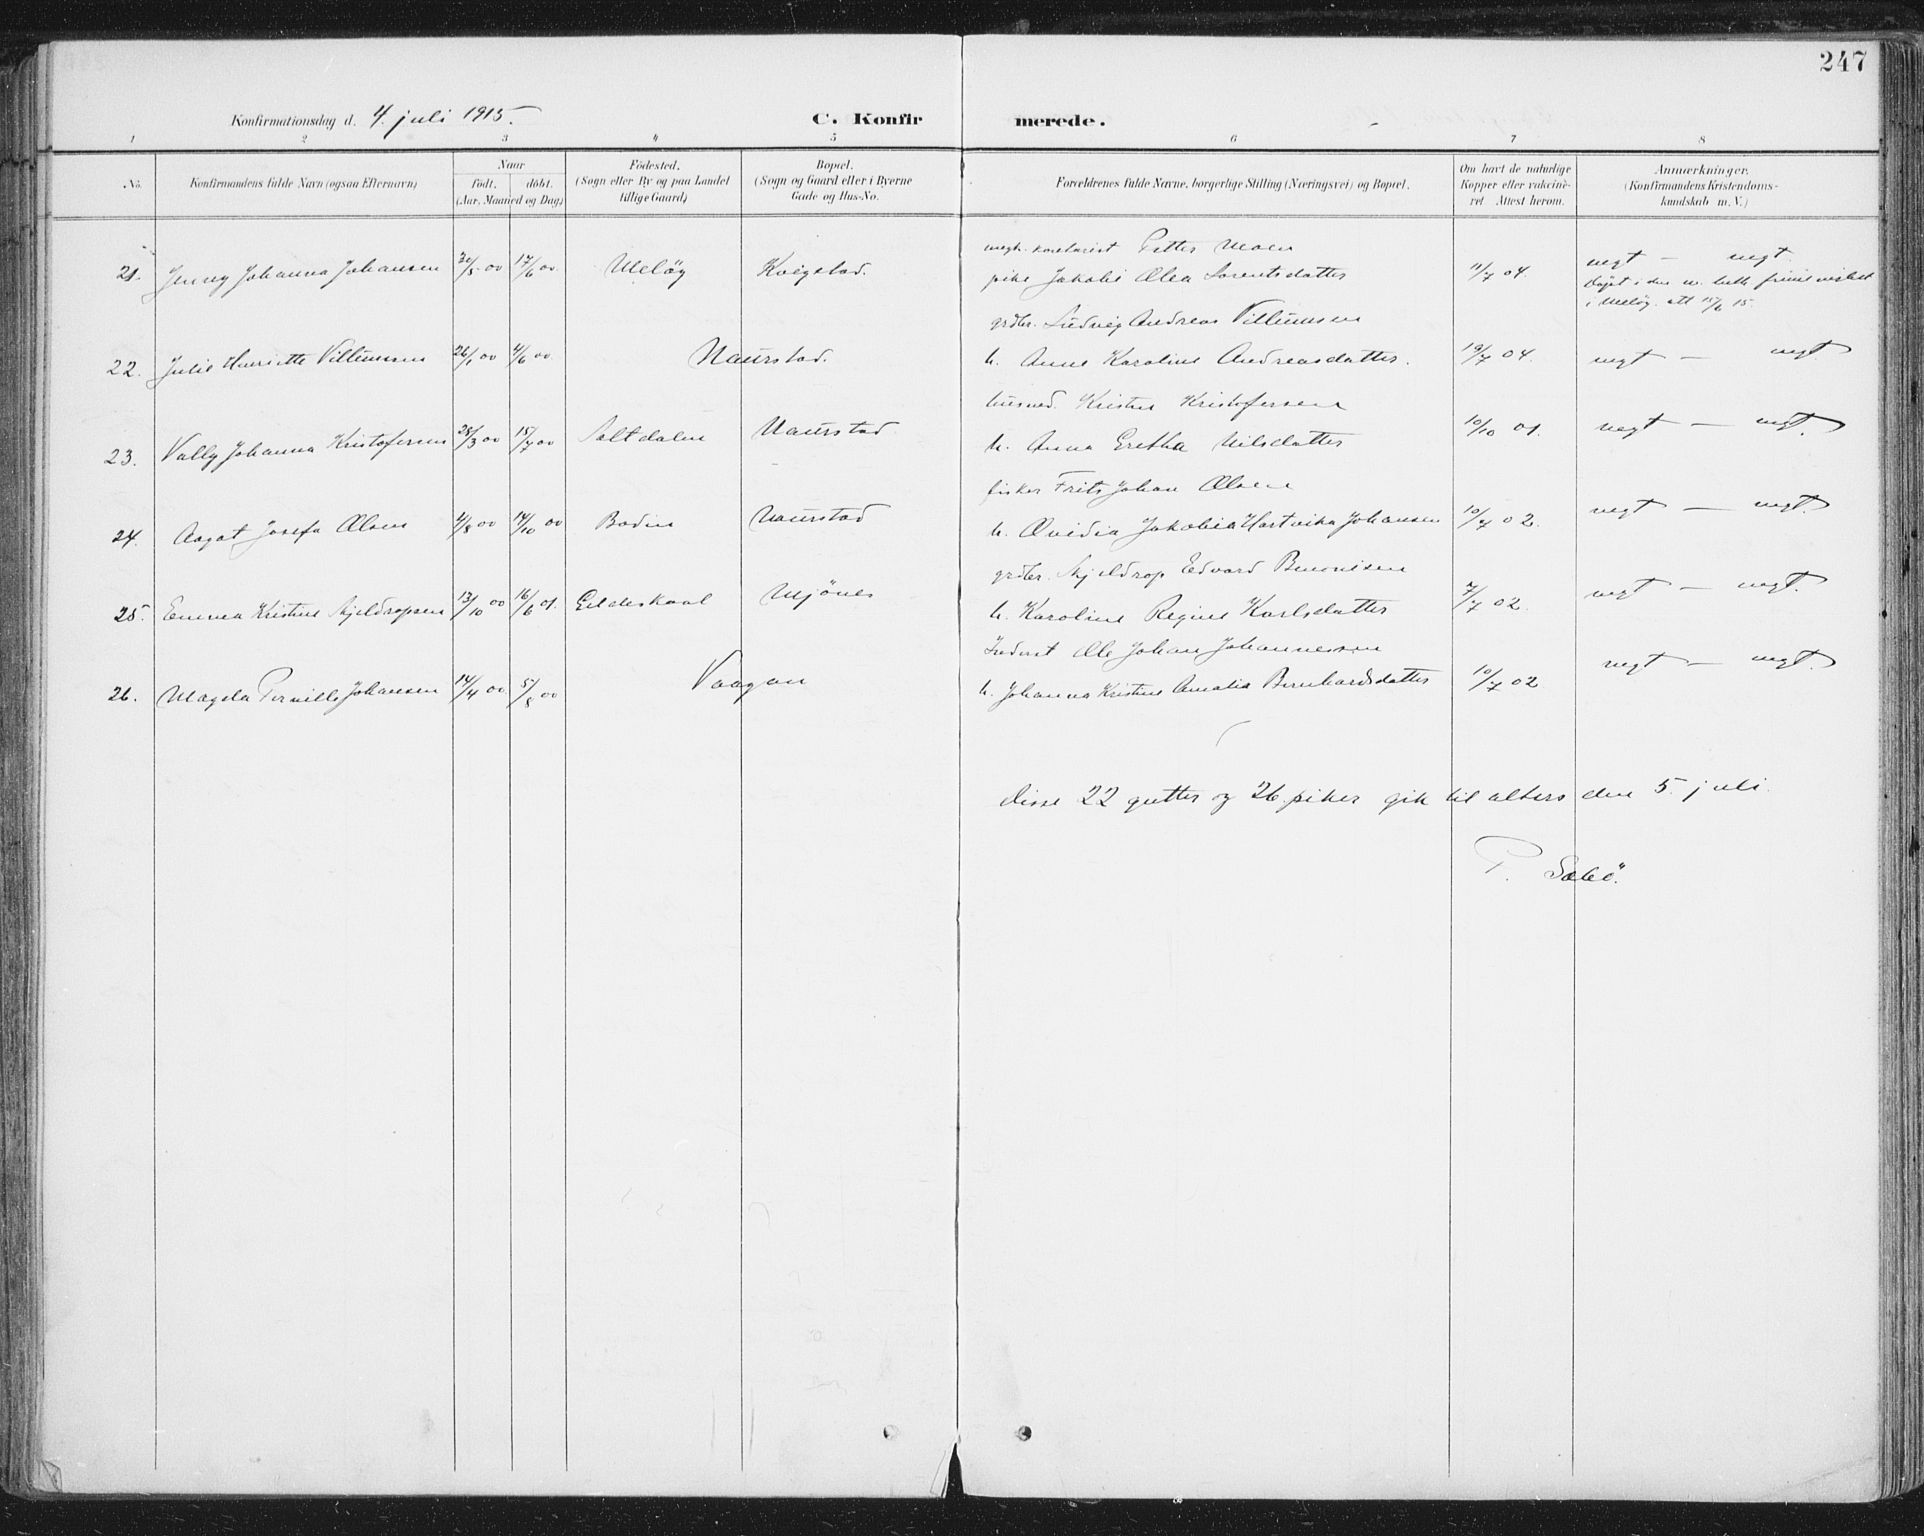 247
Konfirmationsdag d. 4. juli 1915. C. Konfirmerede.
1 2 3 4 5 6 7 8
No. Konfirmandens fulde Navn (ogsaa Efternavn) Naar født. døbt. (Aar, Maaned og Dag) Fødested. (Sogn eller By og paa Landet tillige Gaard) Bopæl. (Sogn og Gaard eller i Byerne Gade og Hus-No. Forældrenes fulde Navne, borgerlige Stilling (Næringsvei) og Bopæl. Om havt de naturlige Kopper eller vakcineret. Attest herom. Anmærkninger. (Konfirmandens Kristendomskundskab m. V.)
Petter Moen
21. Jenny Johanna Johansen 30/5 00 17/6 00 Meløy Kvigstad. pike Jakobie Olea Lorentsdatter 11/7 04. megt — megt.
i Meløy. att 15/6 15.
grdbr. Ludvig Andreas Villumsen
22. Julie Henriette Villumsen 26/1 00 4/6 00 Naurstad. h. Anne Karoline Andreasdatter. 19/7 04. megt — megt
husmd. Kristen Kristofersen
23. Vally Johanna Kristofersen 28/3 00 15/7 00 Saltdalen Naurstad h. Anna Gretha Nilsdatter 10/10 01. megt — megt.
fisker Frits Johan Olsen
24. Aagot Josefa Olsen 4/8 00 14/10 00 Bodin Naurstad h. Ovidia Jakobia Hartvika Johansen 10/7 02. megt — megt.
grdbr. Skjeldrop Edvard Benonisen
25. Emma Kristine Skjeldropsen 13/10 00 16/6 01. Gildeskaal Mjønes h. Karoline Regine Karlsdatter 7/7 02. megt — megt.
Inderst Ole Johan Johannessen
26. Magda Pernille Johansen 14/4 00. 5/8 00 Vaagan h. Johanna Kristine Amalia Bernhardsdatter 10/7 02 megt — megt.
Disse 22 gutter og 26 piker gik til alters den 5. juli.
P. Sæbö.